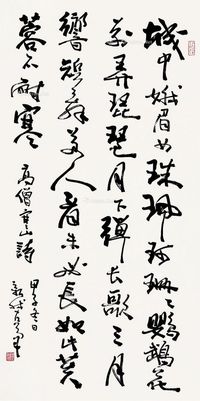 城中娥眉女珠珮珂珊々鸚鵡花
前弄琵琶月下彈長歌三月
響短舞萬人看未必長如此芙
蓉不耐寒 高僧寒山詩
甲子冬日